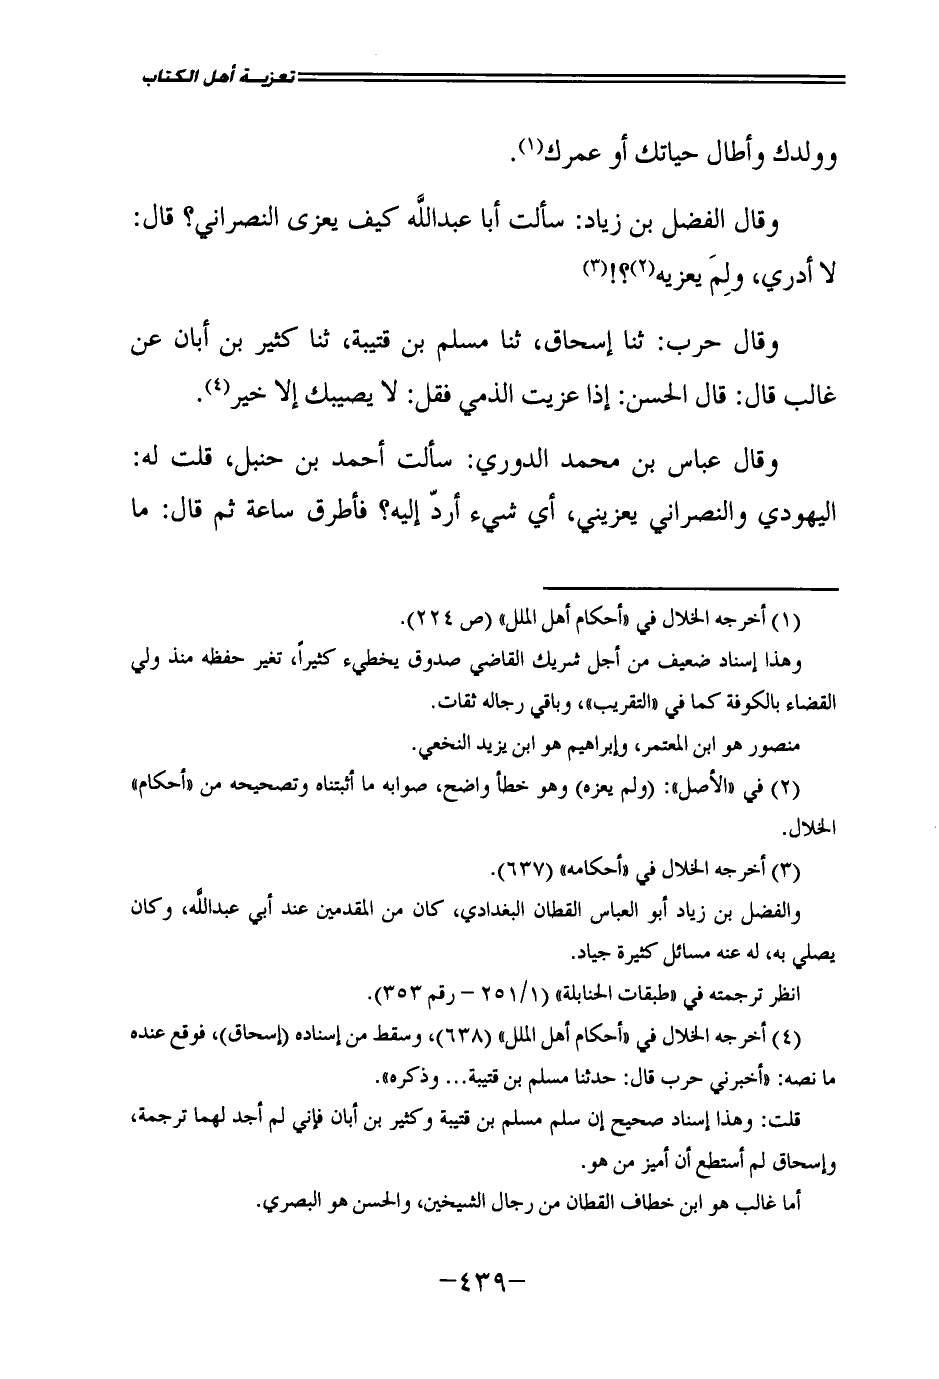 تعزيـة أهل الكتاب
وولدك وأطال حياتك أو عمرك(١).
وقال الفضل بن زياد: سألت أبا عبدالله كيف يعزى النصراني؟ قال:
لا أدري، ولِمَ يعزيه(٢)؟!(٣)
وقال حرب: ثنا إسحاق، ثنا مسلم بن قتيبة، ثنا كثير بن أبان عن
غالب قال: قال الحسن: إذا عزيت الذمي فقل: لا يصيبك إلا خير(٤).
وقال عباس بن محمد الدوري: سألت أحمد بن حنبل، قلت له:
اليهودي والنصراني يعزيني، أي شيء أردّ إليه؟ فأطرق ساعة ثم قال: ما
(١) أخرجه الخلال في «أحكام أهل الملل» (ص ٢٢٤).
وهذا إسناد ضعيف من أجل شريك القاضي صدوق يخطيء كثيراً، تغير حفظه منذ ولي
القضاء بالكوفة كما في «التقريب»، وباقي رجاله ثقات.
منصور هو ابن المعتمر، وإبراهيم هو ابن يزيد النخعي.
(٢) في «الأصل»: (ولم يعزه) وهو خطأ واضح، صوابه ما أثبتناه وتصحيحه من «أحكام»
الخلال.
(٣) أخرجه الخلال في «أحكامه» (٦٣٧).
والفضل بن زياد أبو العباس القطان البغدادي، كان من المقدمين عند أبي عبدالله، وكان
يصلي به، له عنه مسائل كثيرة جياد.
انظر ترجمته في «طبقات الحنابلة» (٢٥١/١ – رقم ٣٥٣).
(٤) أخرجه الخلال في «أحكام أهل الملل» (٦٣٨)، وسقط من إسناده (إسحاق)، فوقع عنده
ما نصه: «أخبرني حرب قال: حدثنا مسلم بن قتيبة... وذكره».
قلت: وهذا إسناد صحيح إن سلم مسلم بن قتيبة وكثير بن أبان فإني لم أجد لهما ترجمة،
وإسحاق لم أستطع أن أميز من هو.
أما غالب هو ابن خطاف القطان من رجال الشيخين، والحسن هو البصري.
–٤٣٩–